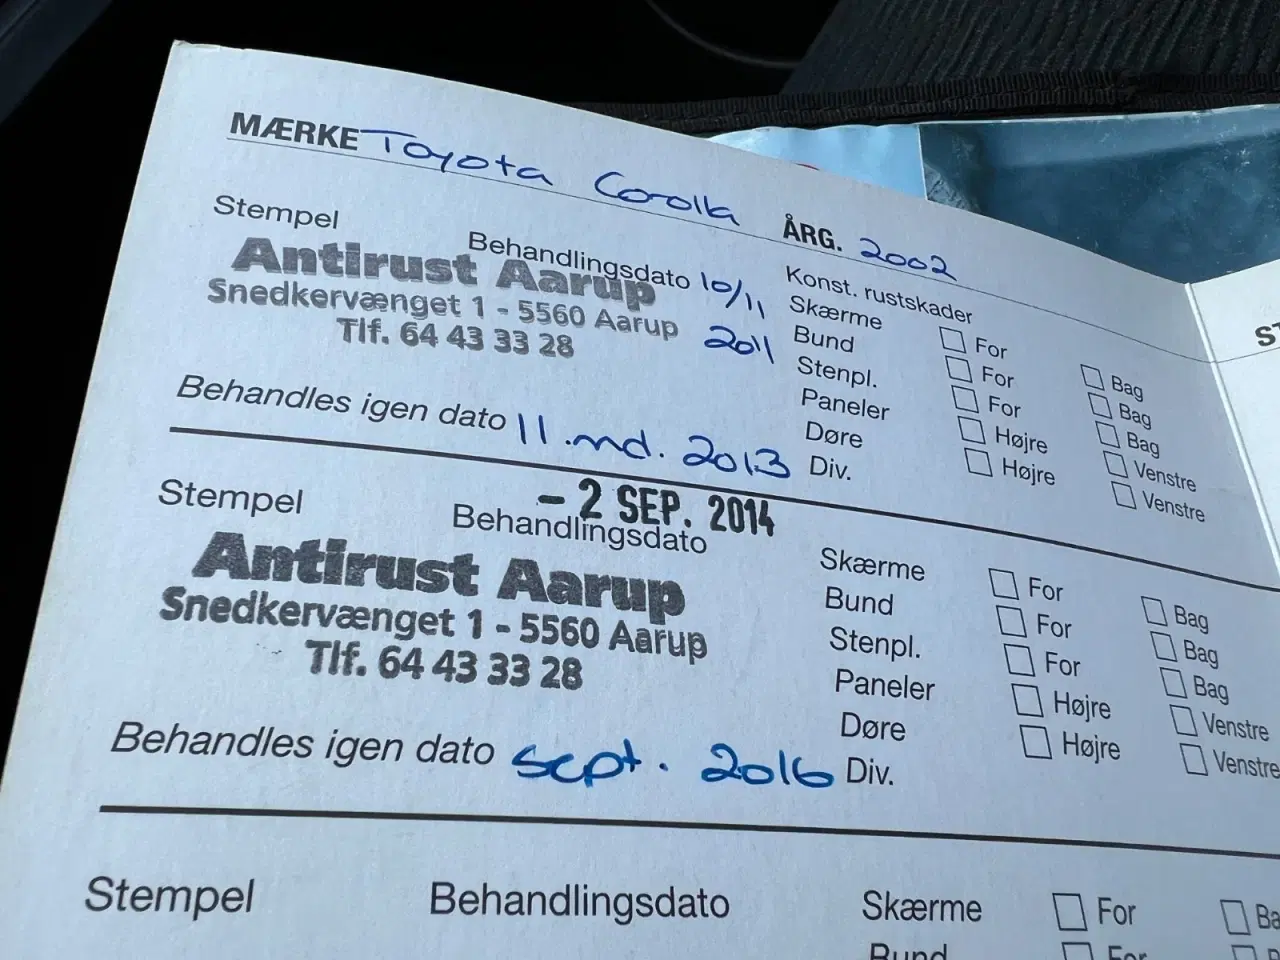 MÆRKE Toyota Corolla ÅRG. 2002
Stempel Behandlingsdato 10/11 2011 Konst. rustskader
Antirust Aarup
Snedkervænget 1 - 5560 Aarup
Tlf. 64 43 33 28
Skærme For Bag
Bund For Bag
Stenpl. For Bag
Paneler Højre Venstre
Døre Højre Venstre
Behandles igen dato 11.md. 2013 Div.
Stempel Behandlingsdato - 2 SEP. 2014
Antirust Aarup
Snedkervænget 1 - 5560 Aarup
Tlf. 64 43 33 28
Skærme For Bag
Bund For Bag
Stenpl. For Bag
Paneler Højre Venstre
Døre Højre Venstre
Behandles igen dato sept. 2016 Div.
Stempel Behandlingsdato Skærme For Ba
Bund For